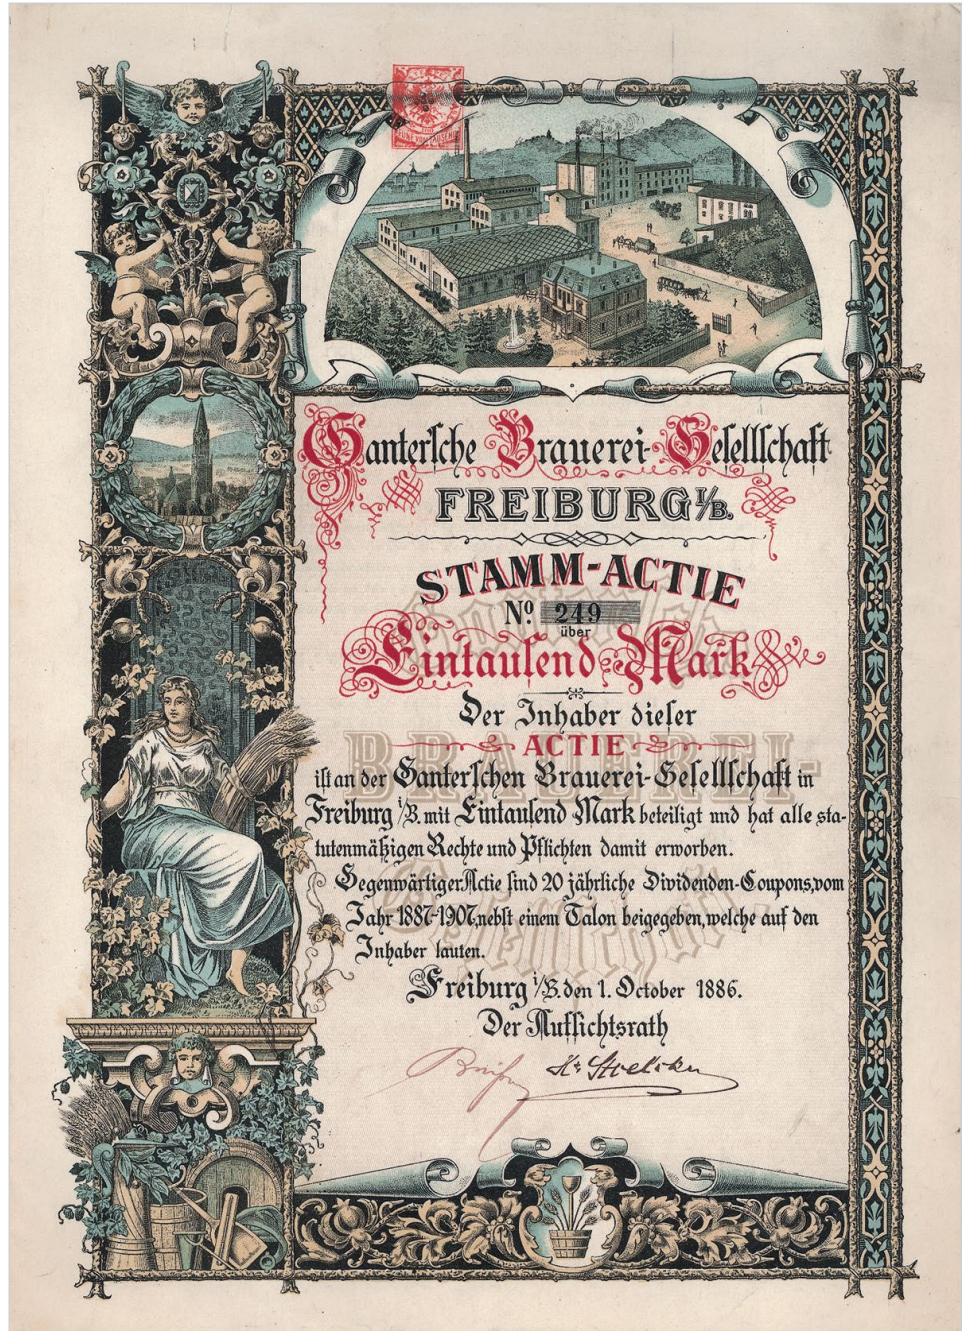 Ganter'sche Brauerei-Gesellschaft
FREIBURG i/B.
STAMM-ACTIE
No. 249
über
Eintausend Mark
Der Inhaber dieser
ACTIE
ist an der Ganter'schen Brauerei-Gesellschaft in
Freiburg i/B. mit Eintausend Mark beteiligt und hat alle sta-
tutenmäßigen Rechte und Pflichten damit erworben.
Gegenwärtiger Actie sind 20 jährliche Dividenden-Coupons, vom
Jahr 1887-1907, nebst einem Talon beigegeben, welche auf den
Inhaber lauten.
Freiburg i/B. den 1. October 1886.
Der Aufsichtsrath
BRAUEREI-
Gesellschaft